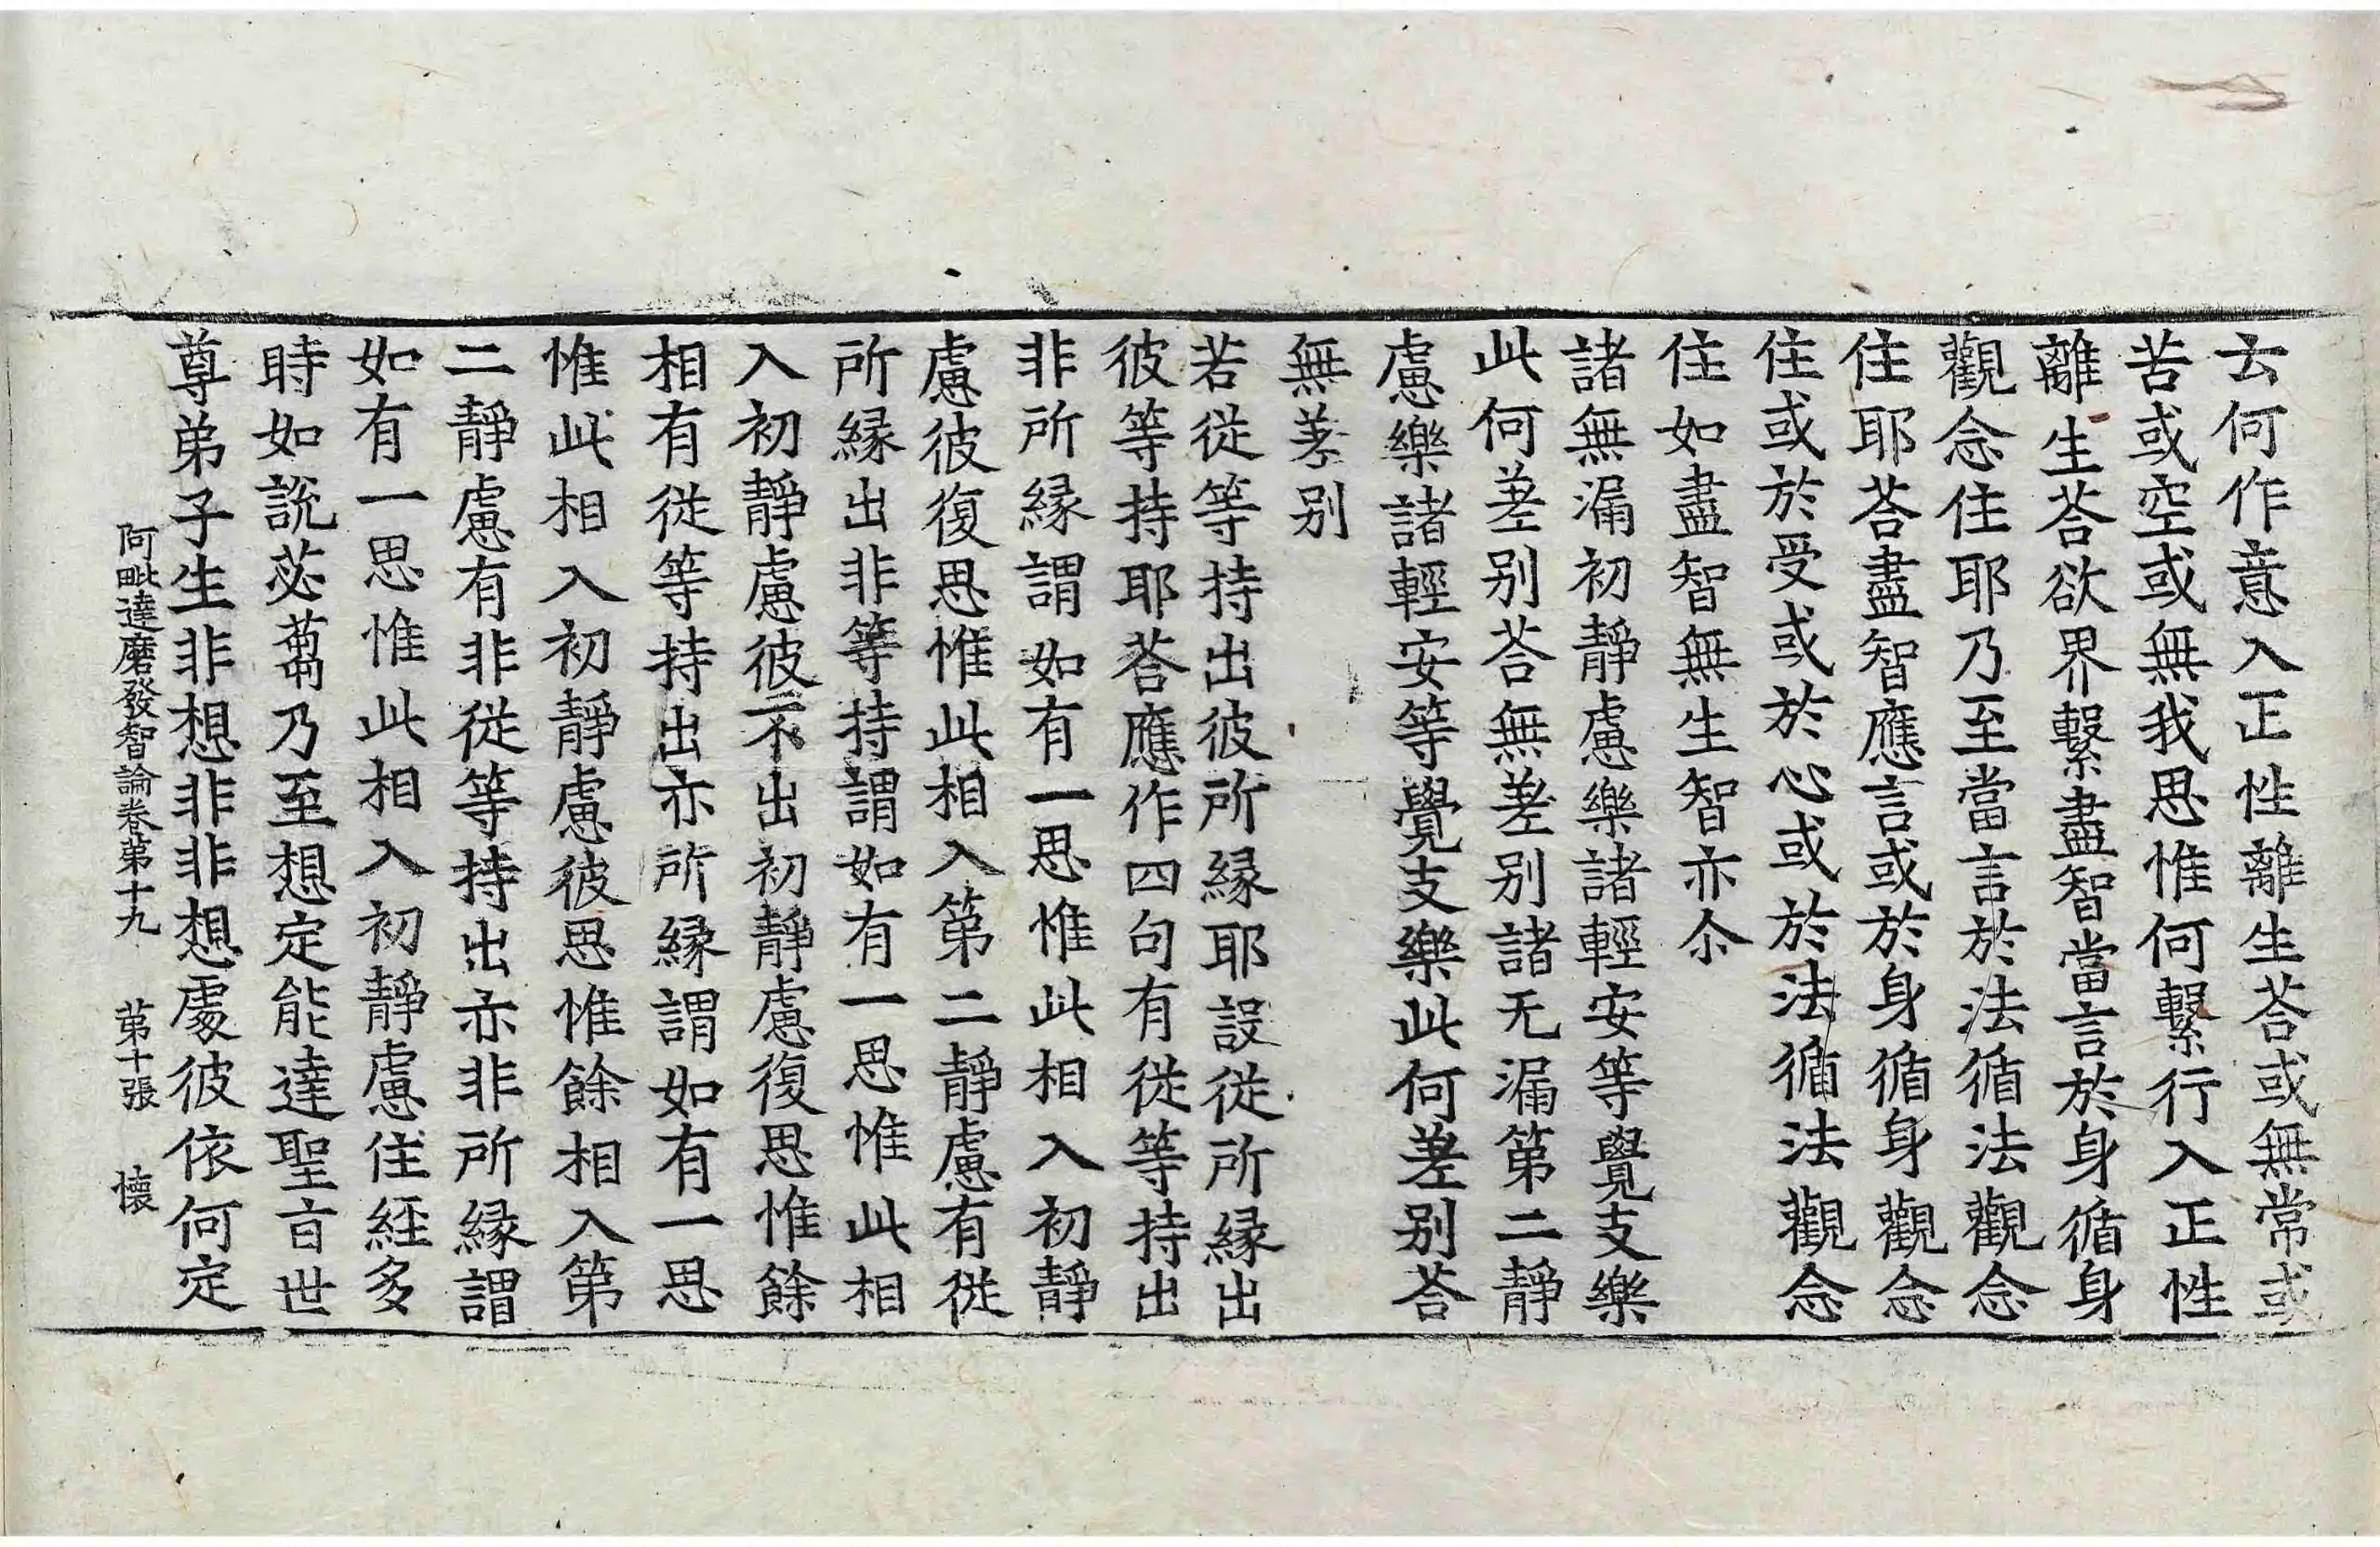 云何作意入正性離生荅或無常或
苦或空或無我思惟何繫行入正性
離生荅欲界繫盡智當言於身循身
觀念住耶乃至當言於法循法觀念
住耶荅盡智應言或於身循身觀念
住或於受或於心或於法循法觀念
住如盡智無生智亦尒
諸無漏初靜慮樂諸輕安等覺支樂
此何差別荅無差別諸无漏第二靜
慮樂諸輕安等覺支樂此何差別荅
無差別
若從等持出彼所緣耶設從所緣出
彼等持耶荅應作四句有從等持出
非所緣謂如有一思惟此相入初靜
慮彼復思惟此相入第二靜慮有從
所緣出非等持謂如有一思惟此相
入初靜慮彼不出初靜慮復思惟餘
相有從等持出亦所緣謂如有一思
惟此相入初靜慮彼思惟餘相入第
二靜慮有非從等持出亦非所緣謂
如有一思惟此相入初靜慮住經多
時如說苾蒭乃至想定能達聖旨世
尊弟子生非想非非想處彼依何定
阿毗達磨發智論卷第十九 第十張 懷